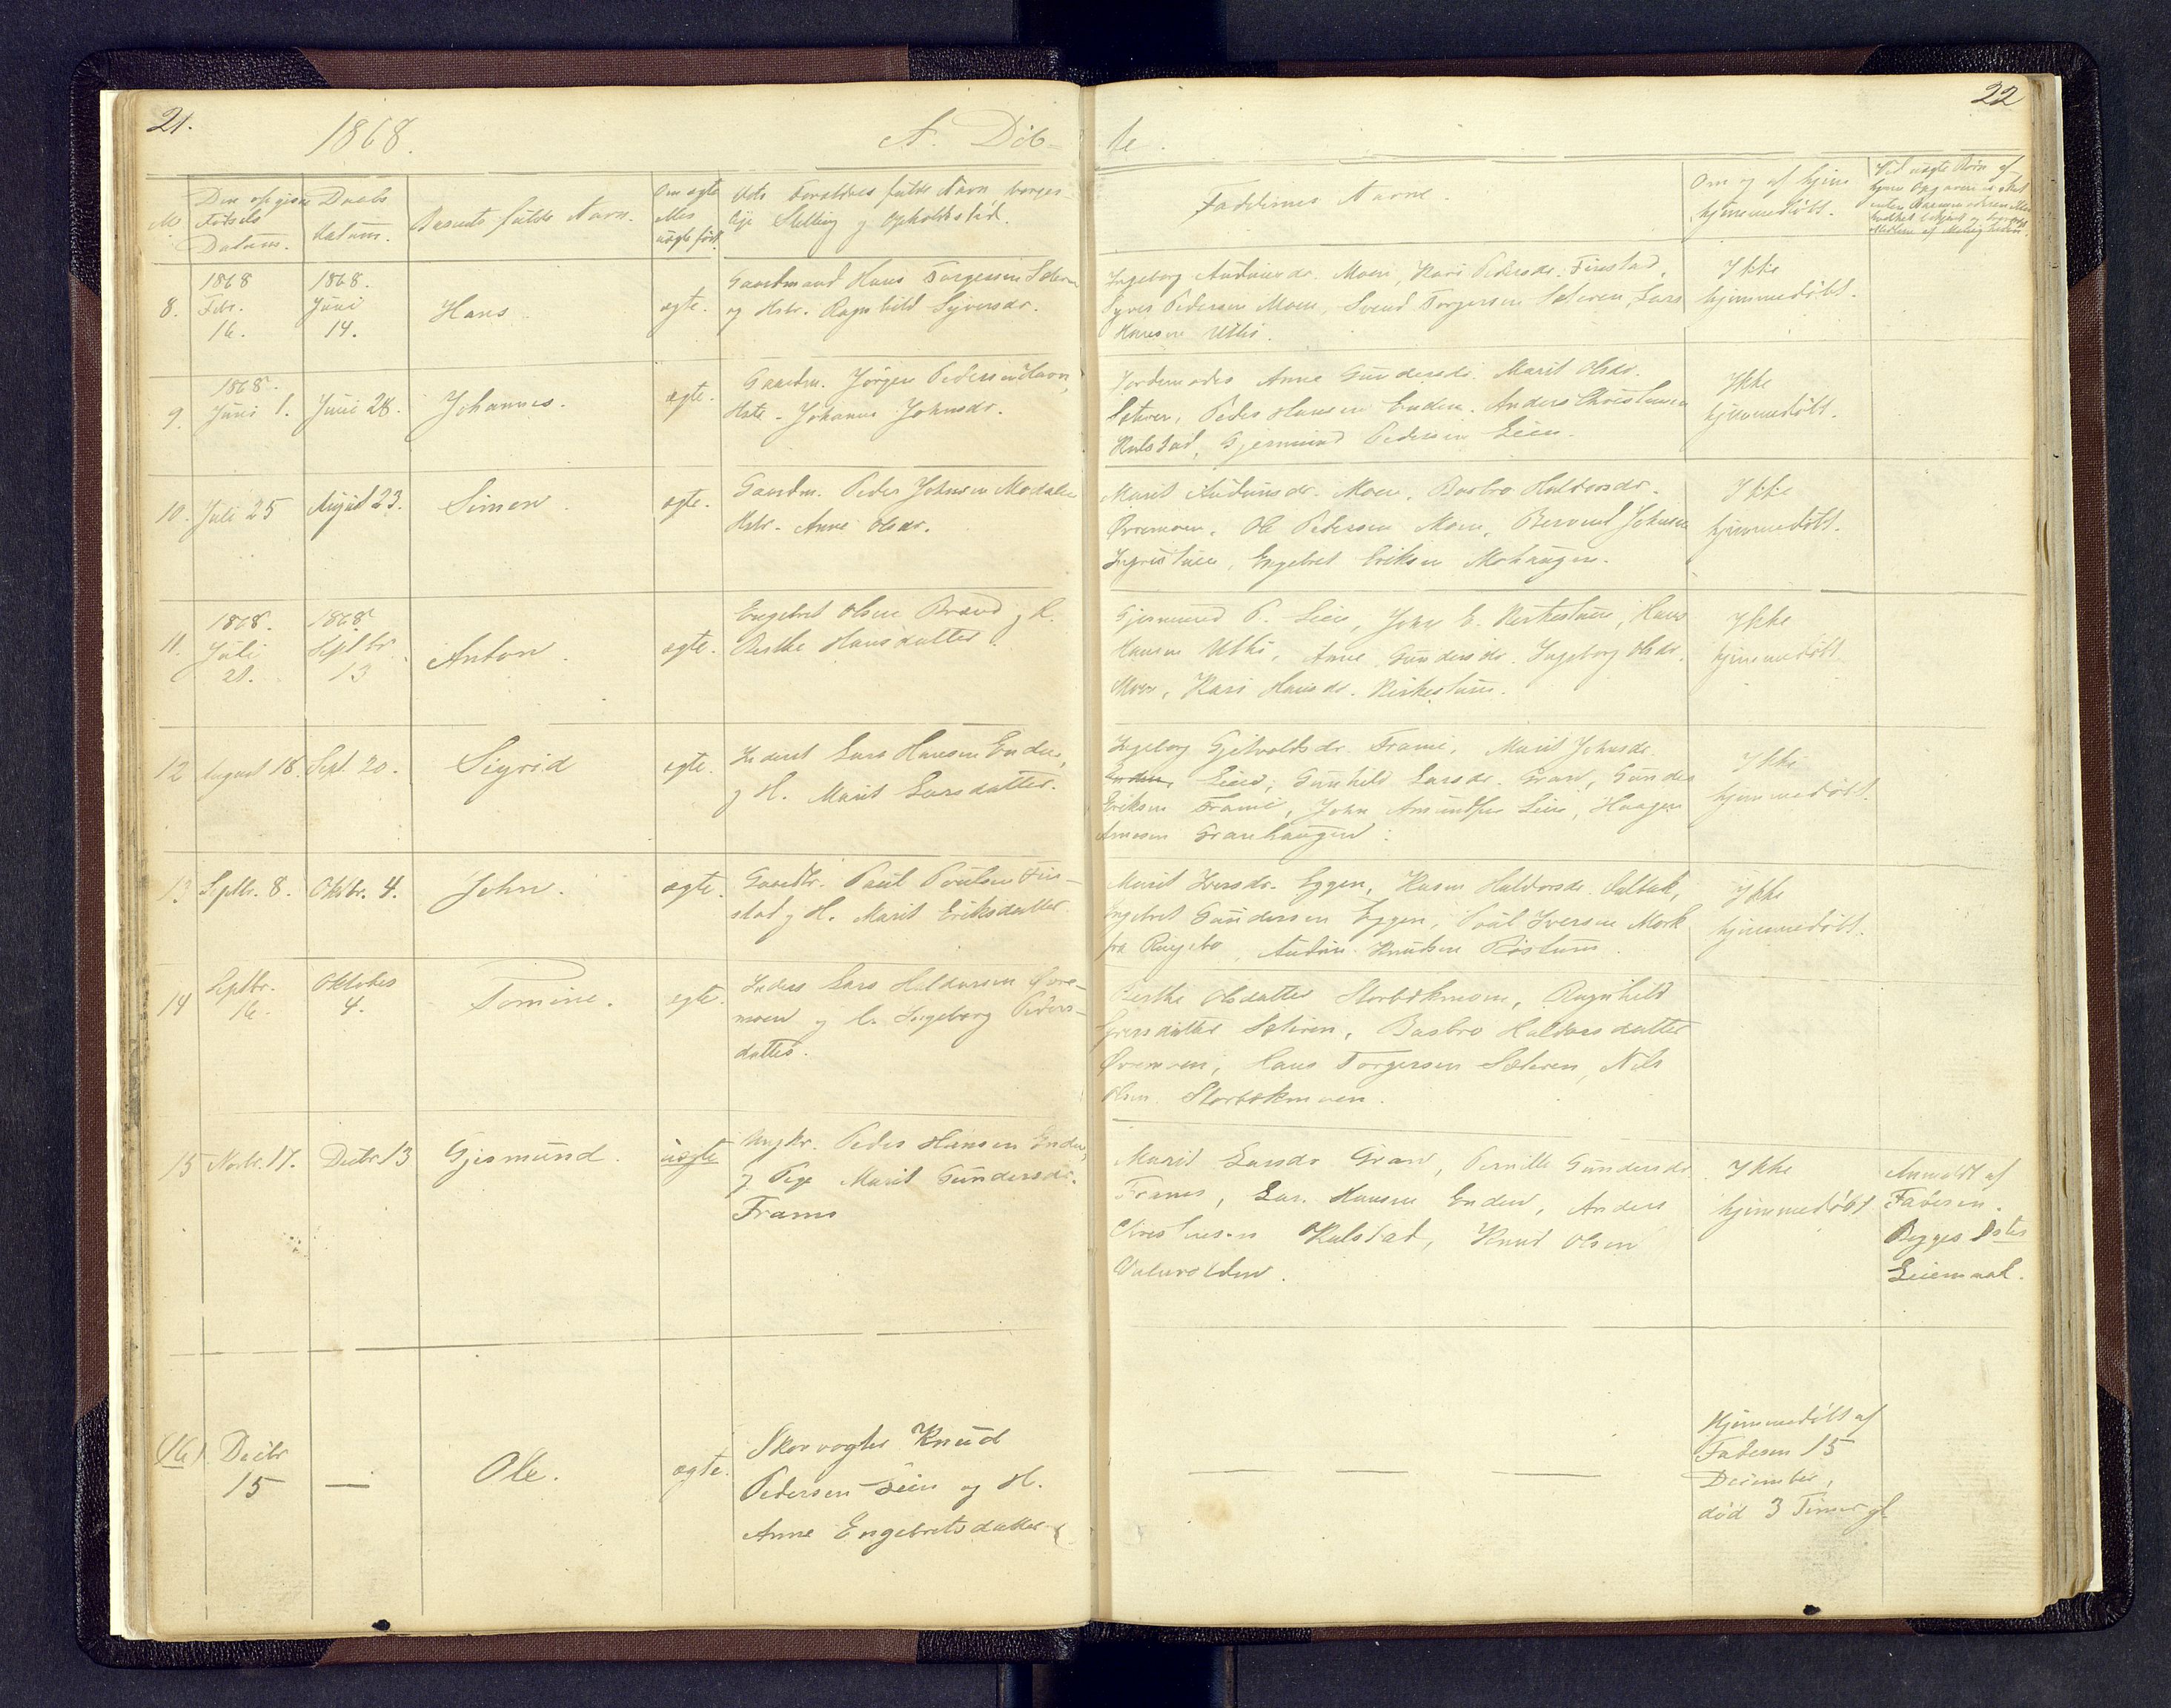 21.
22
1868.
A. Döb-
te.
No
Den opgivne
Fødsels
Datum.
Daabs
datum.
Barnets fulde Navn.
Om ægte
eller
uægte født
Dets Forældres fulde Navn borger-
lige Stilling og Opholdssted.
Faddernes Navne.
Om og af hjem
hjemmedöbt.
Ved uægte Børn af
8.
1868
Febr.
16.
1868.
Juni
14.
Hans
ægte.
Gaardmand Hans Torgersen Sæteren
og Hstr. Ragnhild Syversdr.
Ingeborg Audunsdr. Moen, Kari Pedersdr. Finstad,
Syver Pedersen Moen, Svend Torgersen Sæteren, Lars
Hansen Uthi.
Ikke
hjemmedöbt.
9.
1868.
Juni 1.
Juni 28.
Johannes.
ægte.
Gaardm. Jörgen Pedersen
Hstr. Johanne Johnsdr.
Jordemoder Anne Gundersdr. Marit Olsdr.
Sæteren, Peder Hansen Enden. Anders Christensen
Kulstad, Gjermund Pedersen Lien.
Ikke
hjemmedöbt.
10.
Juli 25
August 23.
Simen.
ægte.
Gaardm. Peder Johnsen Modalen
Hstr. Anne Olsdr.
Marit Audunsdr. Moen. Barbro Haldorsdr.
Øvremoen. Ole Pedersen Moen, Berent Johnsen
Engebret Eriksen Mohaugen.
Ikke
hjemmedöbt.
11.
1868.
Juli
21.
1868
Septbr
13
Anton.
ægte.
Engebret Olsen Brænd og H.
Berthe Hansdatter
Gjermund P. Lien, John E. Kirkestuen, Hans
Hansen Uthi, Anne Gundersdr. Ingeborg Olsdr.
Moen, Kari Hansdr. Kirkestuen.
Ikke
hjemmedöbt
12
August 18.
Sept. 20.
Sigrid
ægte.
Inderst Lars Hansen Enden,
og H. Marit Larsdatter.
Ingeborg Gjetvoldsdr. Framè, Marit Johnsdr.
Enden Lien, Gunhild Larsdr. Gran, Gunder
Eriksen Framè, John Amundsen Lien, Haagen
Arnesen Granhaugen.
Ikke
hjemmedöbt.
13
Septbr. 8.
Oktbr. 4.
John.
ægte.
Gaardbr. Paul Poulsen Fin-
stad og H. Marit Eriksdatter.
Marit Iversdr. Eggen, Karen Haldorsdr.
Engebret Gundersen Eggen, Poul Iversen Mork
fra Ringebo, Audun Knudsen
Ikke
hjemmedöbt.
14
Septbr.
16.
Oktober
4.
Tomine.
ægte.
Inders Lars Haldorsen Øvre-
moen og H. Ingeborg Peders-
datter.
Berthe Olsdatter Storbækmoen, Ragnhild
Syversdatter Sæteren, Barbro Haldorsdatter
Øvremoen, Hans Torgersen Sæteren, Nils
Olsen Storbækmoen.
15
Novbr. 17.
Decbr 13
Gjermund.
uægte
Ungkr. Peder Hansen Enden,
og Pige Marit Gundersdr.
Frame
Marit Larsdr Gran, Pernille Gundersdr
Frame, Lars Hansen Enden, Anders
Christensen Kulstad, Knud Olsen
Ikke
hjemmedöbt
Anmeldt af
Faderen.
Begges 1ste
Leiermaal.
(16)
Decbr
15
—
Ole.
ægte.
Skovvogter Knud
Pedersen Lien og H.
Anne Engebretsdatter
— — —
Hjemmedöbt af
Faderen 15
December,
död 3 Timer gl.